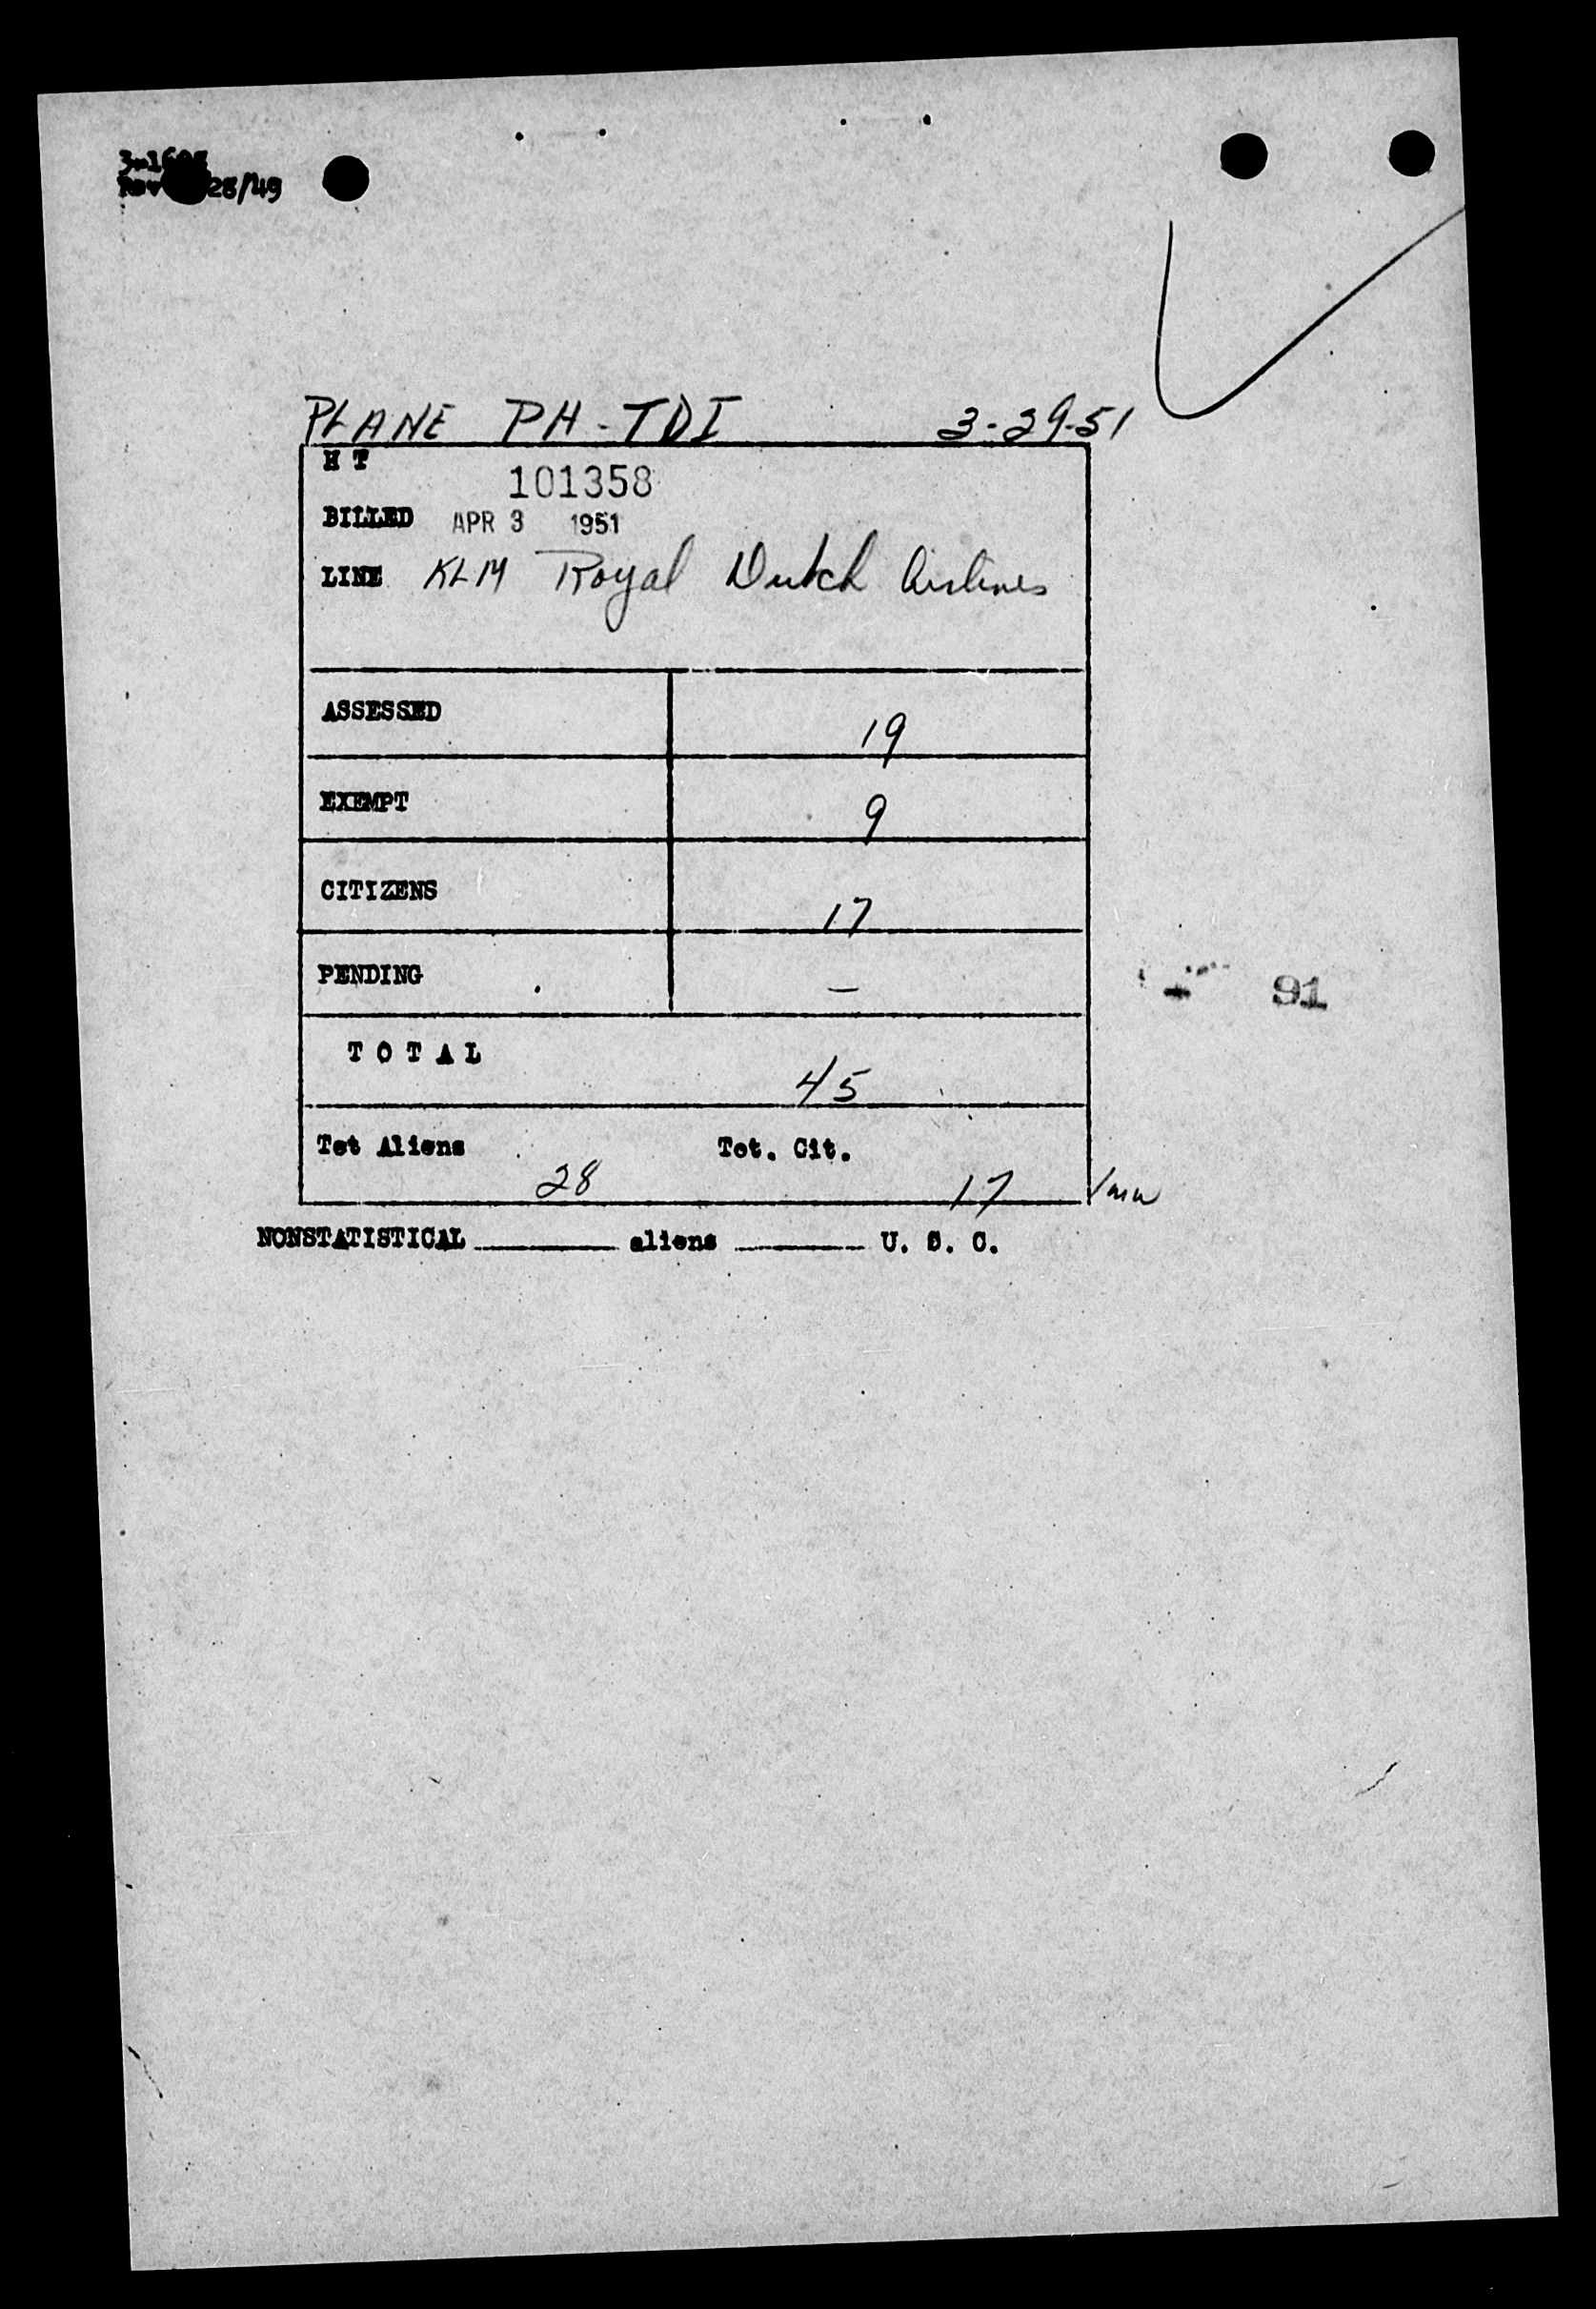 28/49
PLANE PH-TDI 3-29-51
H T 101358
BILLED APR 3 1951
LINE KLM Royal Dutch Airlines
ASSESSED 19
EXEMPT 9
CITIZENS 17
PENDING —
TOTAL 45
Tot Aliens 28 Tot. Cit. 17
91
NONSTATISTICAL ________ aliens ________ U. S. C.